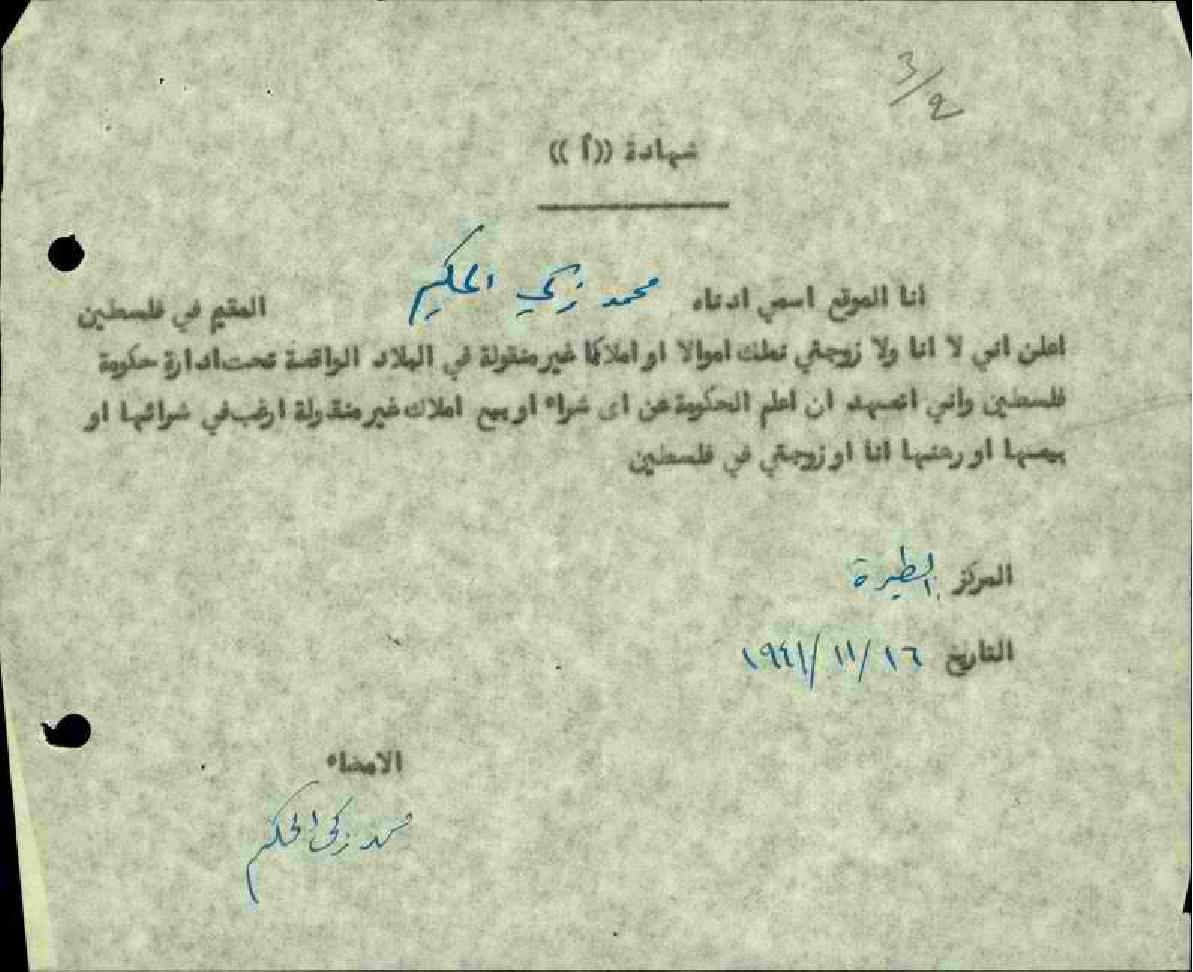 3/2
شهادة ((أ))
انا الموقع اسمي ادناه محمد زكي الحكيم المقيم في فلسطين
اعلن اني لا انا ولا زوجتي نملك اموالا او املاكا غير منقولة في البلاد الواقعة تحت ادارة حكومة
فلسطين واني اتعهد ان اعلم الحكومة عن اى شراء او بيع املاك غير منقولة ارغب في شرائها او
بيعها او رهنها انا او زوجتي في فلسطين
المركز الطيرة
التاريخ ١٦/ ١١/ ١٩٤١
الامضاء
محمد زكي الحكيم